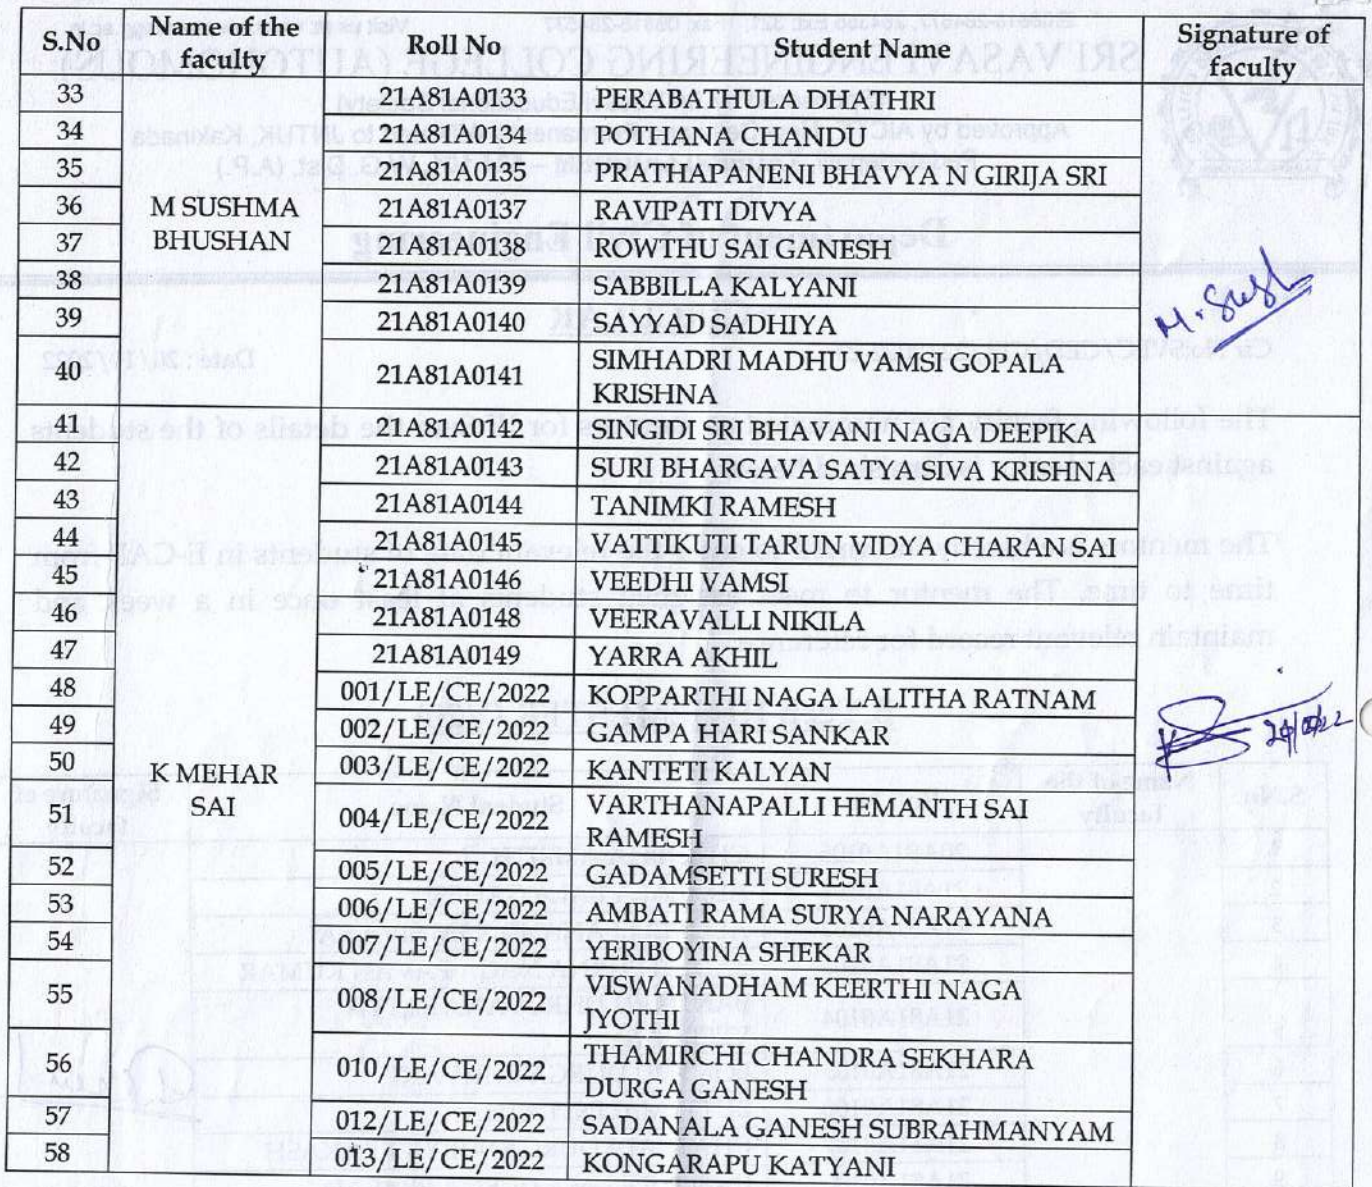 S.No Name of the faculty Roll No Student Name Signature of faculty
33 21A81A0133 PERABATHULA DHATHRI
34 21A81A0134 POTHANA CHANDU
35 21A81A0135 PRATHAPANENI BHAVYA N GIRIJA SRI
36 M SUSHMA 21A81A0137 RAVIPATI DIVYA
37 BHUSHAN 21A81A0138 ROWTHU SAI GANESH
38 21A81A0139 SABBILLA KALYANI
39 21A81A0140 SAYYAD SADHIYA
M. Sush
40 21A81A0141 SIMHADRI MADHU VAMSI GOPALA
KRISHNA
41 21A81A0142 SINGIDI SRI BHAVANI NAGA DEEPIKA
42 21A81A0143 SURI BHARGAVA SATYA SIVA KRISHNA
43 21A81A0144 TANIMKI RAMESH
44 21A81A0145 VATTIKUTI TARUN VIDYA CHARAN SAI
45 21A81A0146 VEEDHI VAMSI
46 21A81A0148 VEERAVALLI NIKILA
47 21A81A0149 YARRA AKHIL
48 001/LE/CE/2022 KOPPARTHI NAGA LALITHA RATNAM
49 002/LE/CE/2022 GAMPA HARI SANKAR
50 K MEHAR 003/LE/CE/2022 KANTETI KALYAN
51 SAI 004/LE/CE/2022 VARTHANAPALLI HEMANTH SAI
RAMESH
52 005/LE/CE/2022 GADAMSETTI SURESH
53 006/LE/CE/2022 AMBATI RAMA SURYA NARAYANA
54 007/LE/CE/2022 YERIBOYINA SHEKAR
55 008/LE/CE/2022 VISWANADHAM KEERTHI NAGA
JYOTHI
56 010/LE/CE/2022 THAMIRCHI CHANDRA SEKHARA
DURGA GANESH
57 012/LE/CE/2022 SADANALA GANESH SUBRAHMANYAM
58 013/LE/CE/2022 KONGARAPU KATYANI